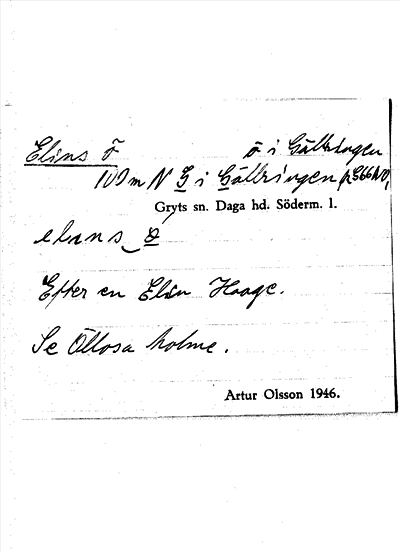 Elins ö ö i Gällringen
100 m N G i Gällringen
Gryts sn. Daga hd. Söderm. l.
elins ö
Efter en Elin Haage.
Se Ollosa holme.
Artur Olsson 1946.